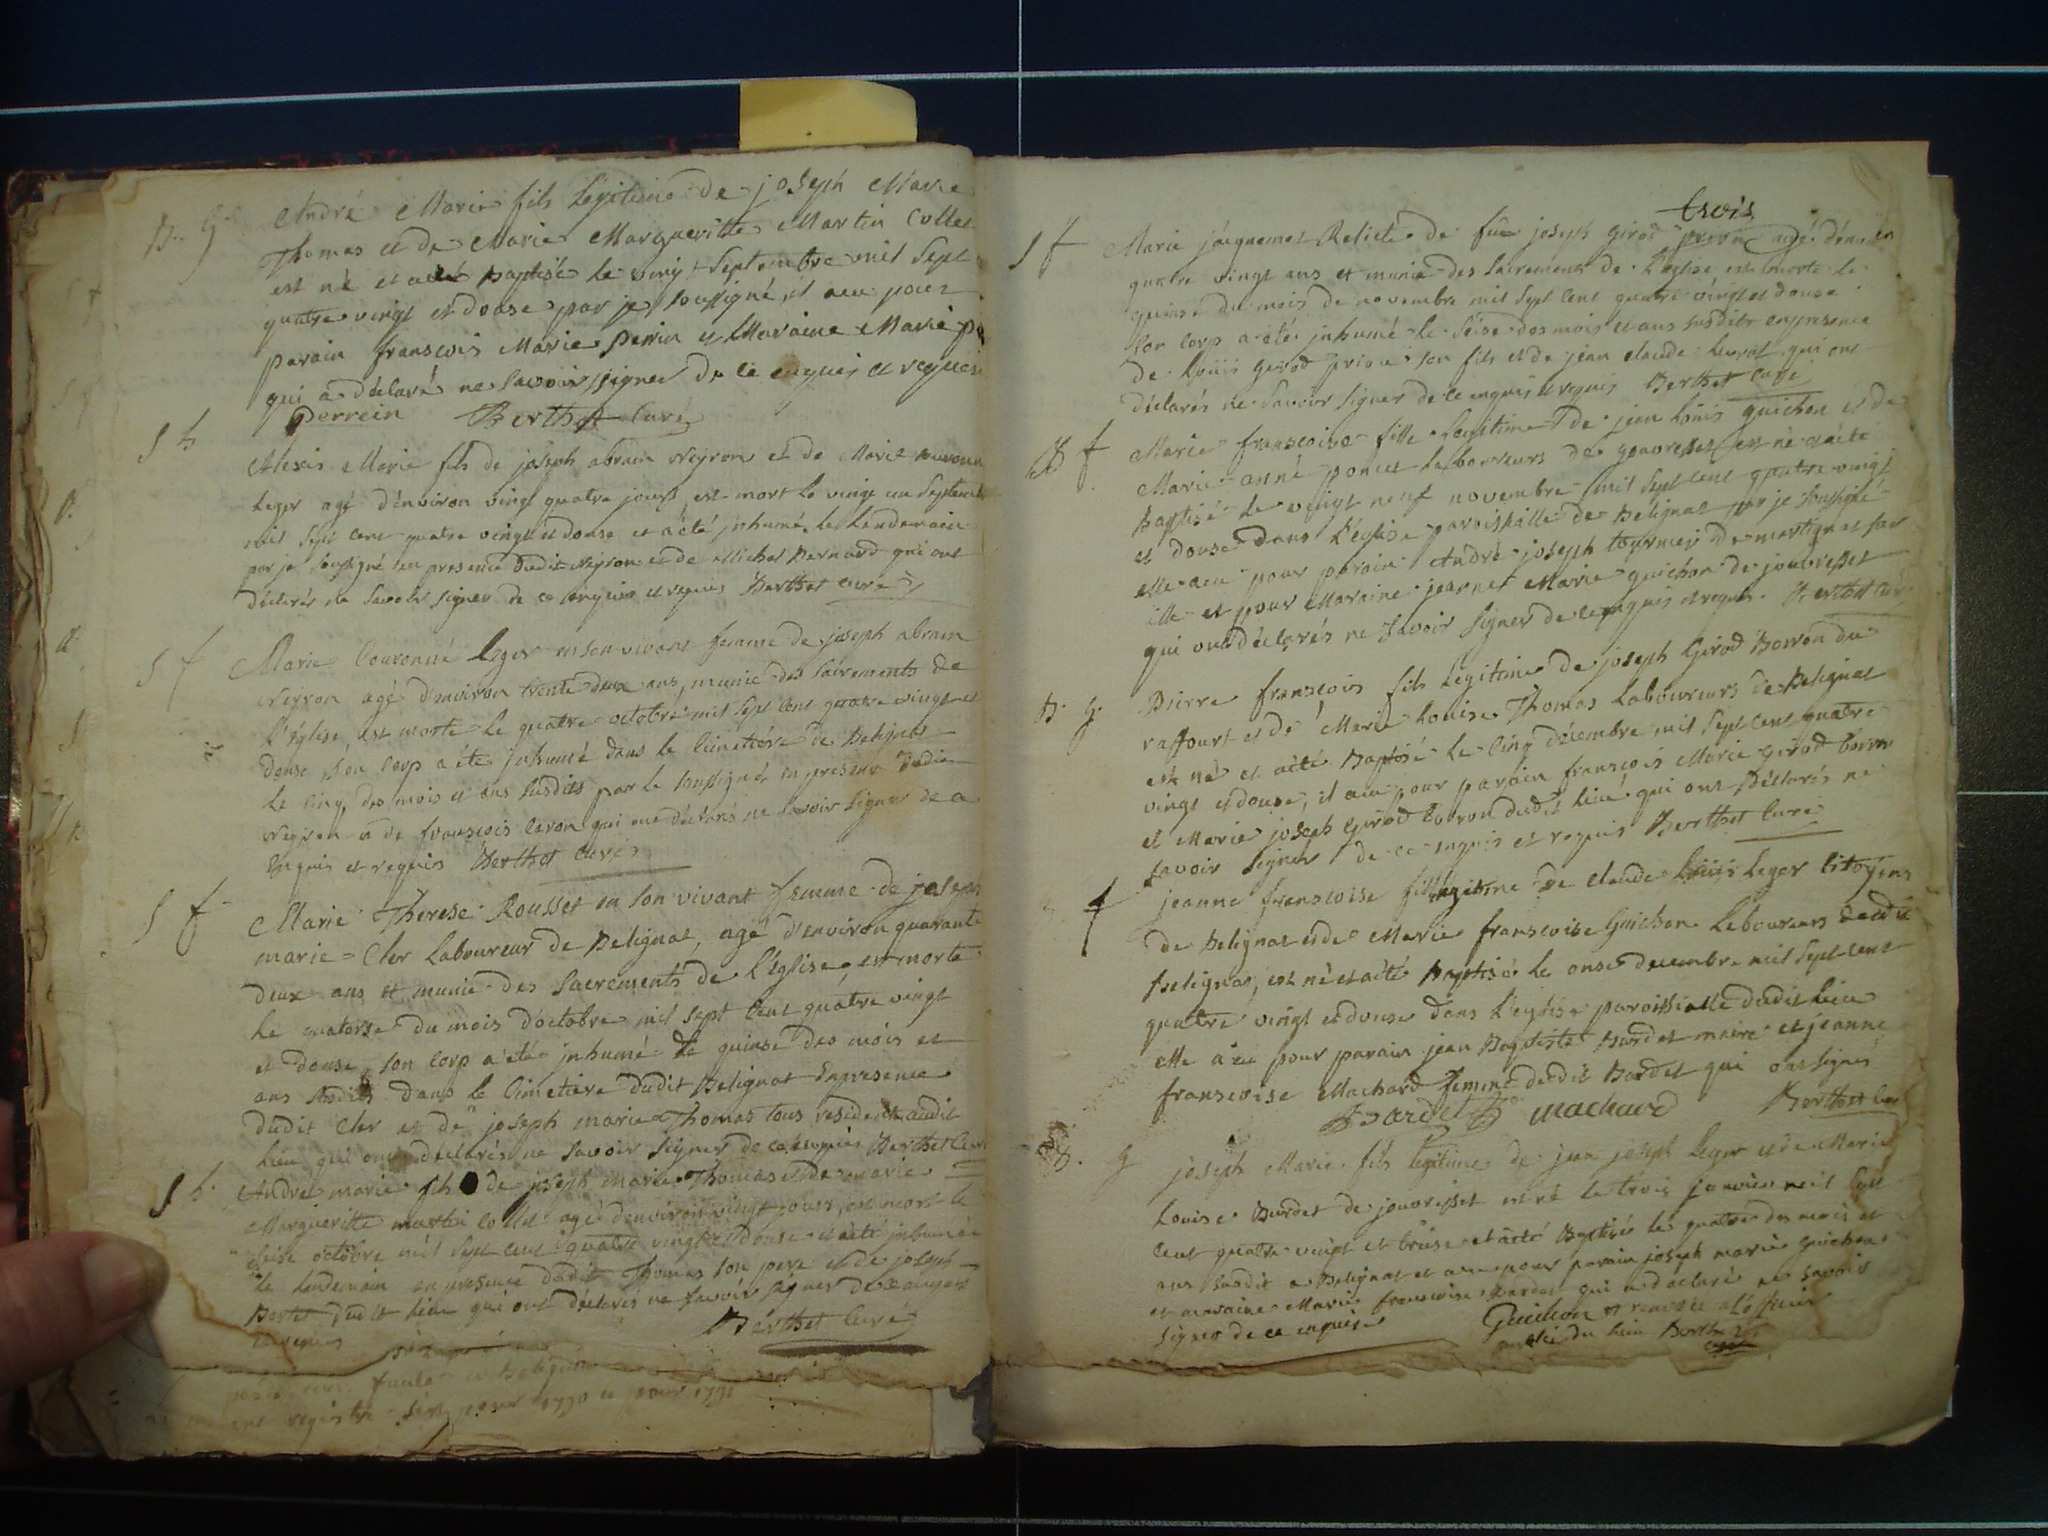 B. G.
André Marie fils légitime de joseph Marie
Thomas et de Marie Margueritte Martin Collet
est né et a été Baptisé le vingt Septembre mil Sept
quatre vingt et douse par je soussigné, il a eu pour
parain franscois Marie Perrin et Maraine Marie
qui a déclaré ne Savoir signer de ce enquis et requis
Perrein Berthet Curé
S h
Alexis Marie fils de joseph abram Neyron et de Marie
Leger agé d'environ vingt quatre jours est mort le vingt un Septembre
mil Sept cent quatre vingt et douse et a été inhumé le lendemain
par je soussigné en presence dudit Neyron et de Michel Bernard qui ont
déclarés ne Savoir signer de ce enquis et requis Berthet curé
S f
Marie Couronné Leger en son vivant femme de joseph abram
Neyron agé d'environ trente deux ans, munie des Sacrements de
l'église, est morte le quatre octobre mil Sept cent quatre vingt et
douse, son corp a été inhumé dans le Cimetière de Belignat
le cinq des mois et ans susdits par le soussigné en presence dudit
Neyron et de franscois Caron qui ont déclarés ne savoir signer de ce
enquis et requis Berthet curé
S f
Marie Therese Rousset en son vivant femme de joseph
marie Cler Laboureur de Belignat, agé d'environ quarante
deux ans et munie des Sacrements de l'église, est morte
le quatorse du mois d'octobre mil sept cent quatre vingt
et douse, son corp a été inhumé le quinse des mois et
ans susdits dans le Cimetière dudit Belignat En presence
dudit Cler et de joseph marie Thomas tous residents audit
lieu qui ont declarés ne savoir signer de ce enquis Berthet Curé
S h
André marie fils de joseph marie Thomas et de marie
Margueritte martin collet agé d'environ vingt jours, est mort le
seise octobre mil Sept cent quatre vingt et douse et a été inhumé
le lendemain en presence dudit Thomas son pere et de joseph
dudit lieu qui ont déclarés ne savoir signer de ce enquis
et requis Berthet Curé
registre pour 1790 et pour 1791
trois
S f
Marie jacquemet Relicte de feu joseph girod prion agé d'environ
quatre vingt ans et munie des Sacrements de l'église, est morte le
quinse du mois de novembre mil Sept cent quatre vingt et douse
son corp a été inhumé le Seise des mois et ans susdits en presence
de Louis girod prion son fils et de jean claude qui ont
déclarés ne Savoir signer de ce enquis et requis Berthet Curé
B f
Marie franscoise fille légitime de jean Louis guichon et de
Marie anné poncet laboureurs de est né a été
Baptisé le vingt neuf novembre mil Sept cent quatre vingt
et douse dans l'église paroissialle de Belignat par je soussigné
elle a eu pour parain André joseph tournier de martignat
et pour Maraine jeannet Marie guichon de jouvresset
qui ont déclarés ne savoir signer de ce enquis et requis Berthet Curé
B. g.
Pierre franscois fils légitime de joseph Girod Borron du
raffour et de Marie Louise Thomas Laboureurs de Belignat
est né et a été Baptisé le cinq décembre mil Sept cent quatre
vingt et douse, il a eu pour parain franscois Marie girod borron
et Marie joseph girod borron dudit lieu qui ont Déclarés ne
savoir signer de ce enquis et requis Berthet Curé
f
jeanne franscoise fille légitime de claude Louis Leger Citoyens
de Belignat et de Marie franscoise Guichon Laboureurs dudit
Belignat, est né et a été Baptisé le onse decembre mil Sept cent
quatre vingt et douse dans l'église paroissialle dudit lieu
elle a eu pour parain jean Baptiste Bardet maire et jeanne
franscoise Machard femme dudit Bardet qui ont signés
Bardet machard Berthet Curé
B. g
joseph Marie fils légitime de jean joseph Leger et de Marie
Louise Bardet de jouvresset est né le trois janvier mil Sept
cent quatre vingt et treise et a été Baptisé le quatre des mois et
ans susdit a Belignat et a eu pour parain joseph marie guichon
et maraine Marie franscoise Bardet qui a déclaré ne savoir
signer de ce enquise Guichon
du lieu Berthet curé